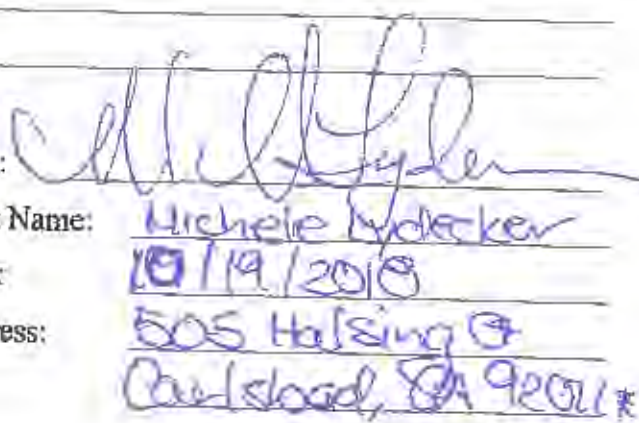 :
Name: Michele Lydecker
10/19/2018
ess: 505 Halsing Ct
Carlsbad, CA 92011*